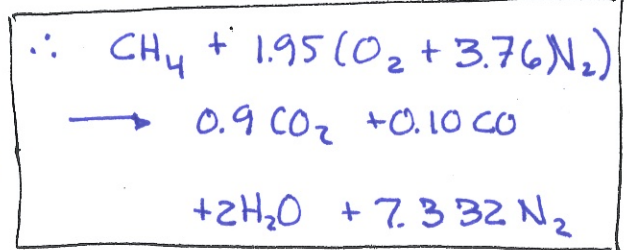 ∴ CH₄ + 1.95(O₂ + 3.76N₂)
⟶ 0.9 CO₂ +0.10 CO
+2H₂O + 7.332 N₂